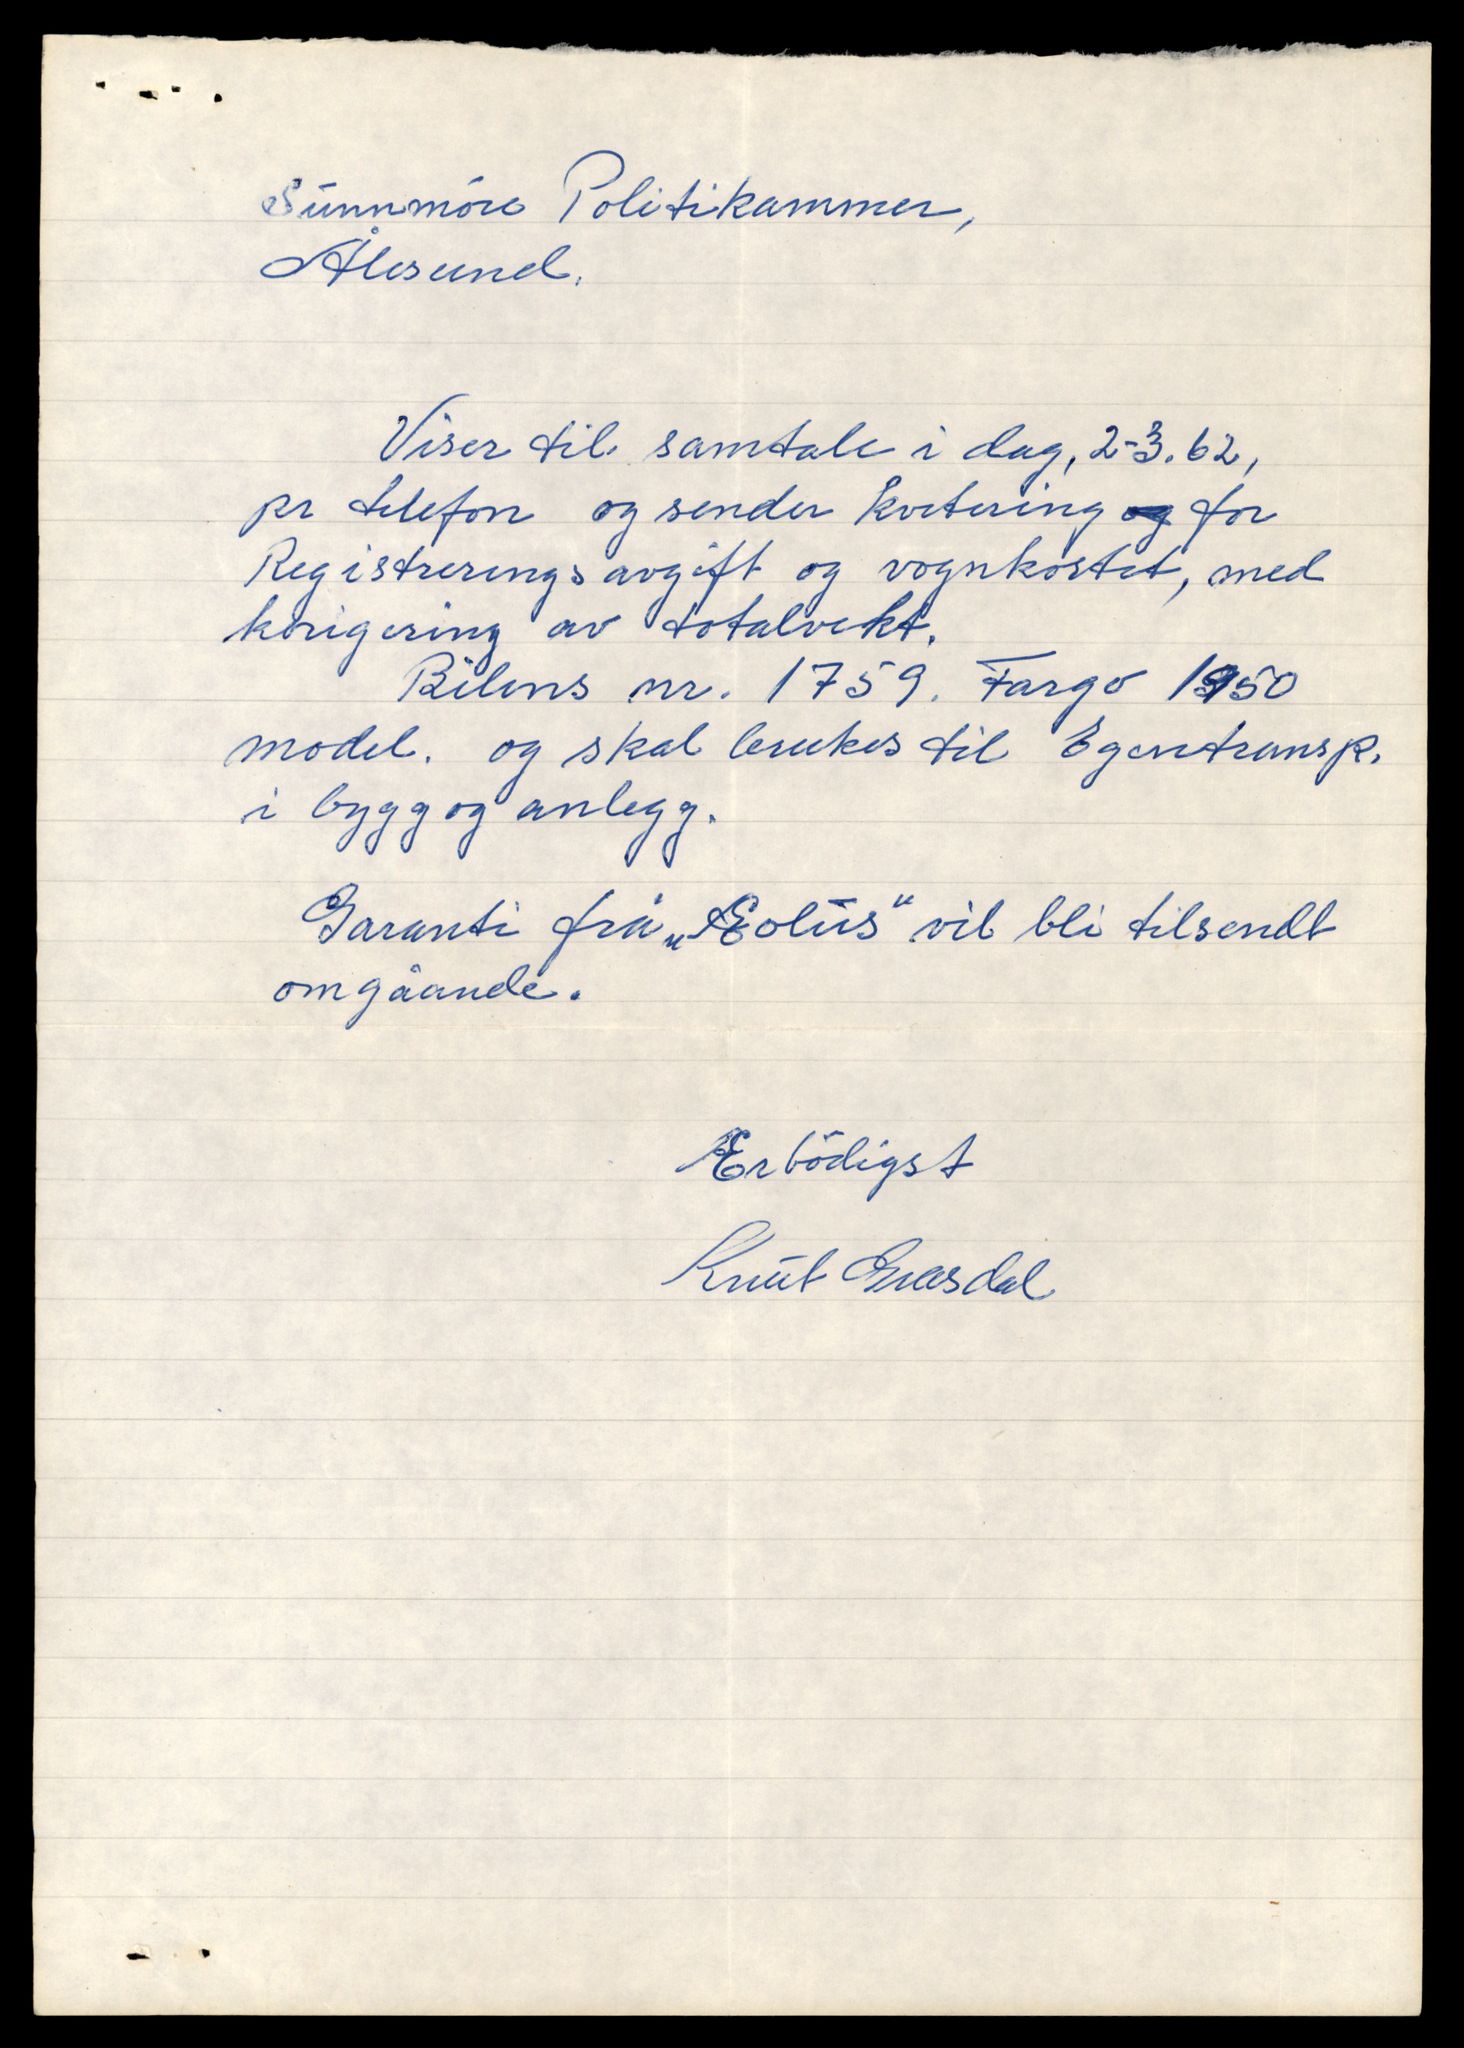 Sunnmöre Politikammer,
Ålesund.
Viser til samtale i dag, 2-3.62,
pr telefon og sender kvitering og for
Registreringsavgift og vognkortet, med
korigering av totalvekt.
Bilens nr. 1759. Fargo 1950
model. og skal brukes til Egentransp.
i bygg og anlegg.
Garanti frå „Æolus“ vil bli tilsendt
omgåande.
Erbödigst
Knut